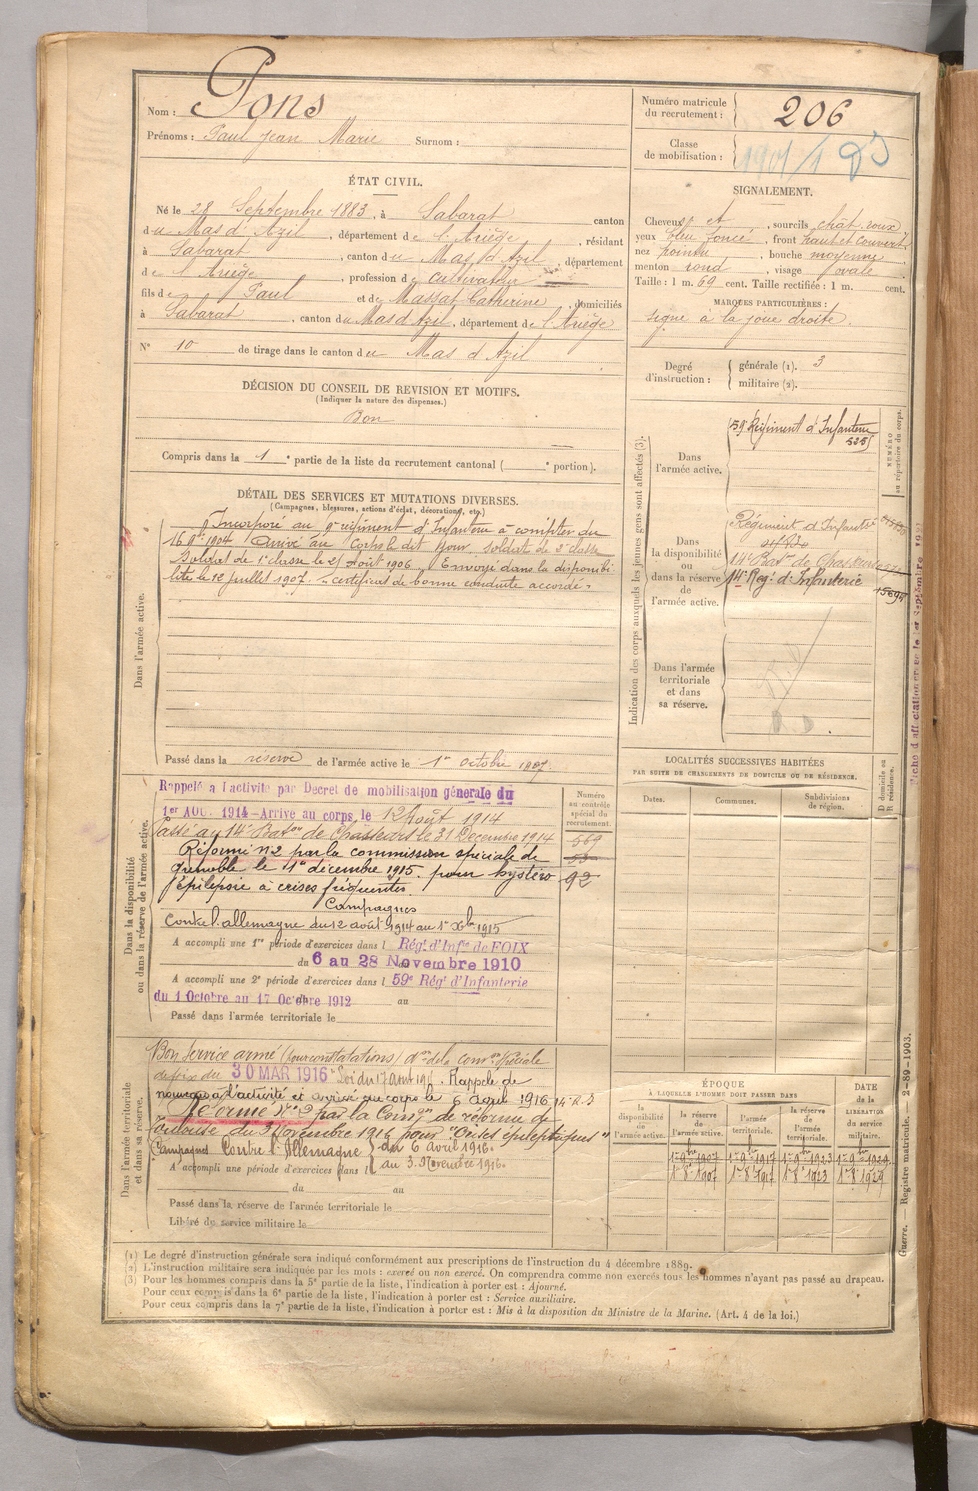 Nom : Pons
Prénoms : Paul Jean Marie Surnom :
Numéro matricule du recrutement : 206
Classe de mobilisation :
ÉTAT CIVIL.
Né le 28 Septembre 1883, à Sabarat canton
du Mas d'Azil, département de l'Ariège, résidant
à Sabarat, canton du Mas d'Azil, département
de l'Ariège, profession de cultivateur
fils de Paul et de Massat Catherine, domiciliés
à Sabarat, canton du Mas d'Azil, département de l'Ariège
N° 10 de tirage dans le canton du Mas d'Azil
SIGNALEMENT.
Cheveux et, sourcils chât. roux
yeux bleu foncé, front haut et couvert,
nez pointu, bouche moyenne
menton rond, visage ovale
Taille : 1 m. 69 cent. Taille rectifiée : 1 m. cent.
MARQUES PARTICULIÈRES :
signe à la joue droite.
Degré d'instruction : générale (1). 3
militaire (2).
DÉCISION DU CONSEIL DE REVISION ET MOTIFS.
(Indiquer la nature des dispenses.)
Bon
Compris dans la 1e partie de la liste du recrutement cantonal ( e portion).
DÉTAIL DES SERVICES ET MUTATIONS DIVERSES.
(Campagnes, blessures, actions d'éclat, décorations, etc.)
Dans l'armée active.
Incorporé au 9e régiment d'Infanterie à compter du
16 9bre 1904 Arrivé au Corps le dit jour, soldat de 2e classe
Soldat de 1e classe le 21 Août 1906. Envoyé dans la disponibi-
lité le 12 juillet 1907. - certificat de bonne conduite accordé.
Passé dans la réserve de l'armée active le 1er octobre 1907.
Indication des corps auxquels les jeunes gens sont affectés (3).
NUMÉRO au répertoire du corps.
Dans l'armée active.
59e Régiment d'Infanterie
525
Dans la disponibilité ou dans la réserve de l'armée active.
Régiment d'Infanterie
14e Baton de Chasseurs
14e Rég. d'Infanterie
15694
Dans l'armée territoriale et dans sa réserve.
LOCALITÉS SUCCESSIVES HABITÉES
PAR SUITE DE CHANGEMENTS DE DOMICILE OU DE RÉSIDENCE.
D domicile ou R résidence.
Dates. Communes. Subdivisions de région.
Dans la disponibilité ou dans la réserve de l'armée active.
Numéro au contrôle spécial du recrutement.
569
53
92
Rappelé à l'activité par Décret de mobilisation générale du
1er AOU. 1914 - Arrivé au corps, le 12 Août 1914
Passé au 14e Baton de Chasseurs le 31 Décembre 1914
Réformé n°2 par la commission spéciale de
Grenoble le 1er décembre 1915 pour hystéro
épilepsie à crises fréquentes
Campagnes
Contre l'allemagne du 12 août 1914 au 1er Xbre 1915
A accompli une 1re période d'exercices dans l Rég. d'Infie de FOIX
du 6 au 28 Novembre 1910
A accompli une 2e période d'exercices dans l 59e Régt d'Infanterie
du 1 Octobre au 17 Octobre 1912 au
Passé dans l'armée territoriale le
Dans l'armée territoriale et dans sa réserve.
Bon Service armé (pour constatations) don de la comon spéciale
de foix du 30 MAR 1916 Loi du 17 août 191. Rappelé de
nouveau à l'activité et arrivé au corps le 6 avril 1916
Réformé N°2 par la Comon de réforme de
Toulouse du 3 Novembre 1916 pour "Crises épileptiques"
Campagnes Contre l'Allemagne du 6 avril 1916.
au 3 Novembre 1916.
A accompli une période d'exercices dans l
du au
Passé dans la réserve de l'armée territoriale le
Libéré du service militaire le
ÉPOQUE
À LAQUELLE L'HOMME DOIT PASSER DANS
la disponibilité de l'armée active. la réserve de l'armée active. l'armée territoriale. la réserve de l'armée territoriale. DATE de la LIBÉRATION du service militaire.
1er 9bre 1907 1er 9bre 1917 1er 9bre 1923 1er 9bre 1929
1er 8bre 1907 1er 8bre 1917 1er 8bre 1923 1er 8bre 1929
(1) Le degré d'instruction générale sera indiqué conformément aux prescriptions de l'instruction du 4 décembre 1889.
(2) L'instruction militaire sera indiquée par les mots : exercé ou non exercé. On comprendra comme non exercés tous les hommes n'ayant pas passé au drapeau.
(3) Pour les hommes compris dans la 5e partie de la liste, l'indication à porter est : Ajourné.
Pour ceux compris dans la 6e partie de la liste, l'indication à porter est : Service auxiliaire.
Pour ceux compris dans la 7e partie de la liste, l'indication à porter est : Mis à la disposition du Ministre de la Marine. (Art. 4 de la loi.)
Guerre. — Registre matricule. — 2-89-1903.